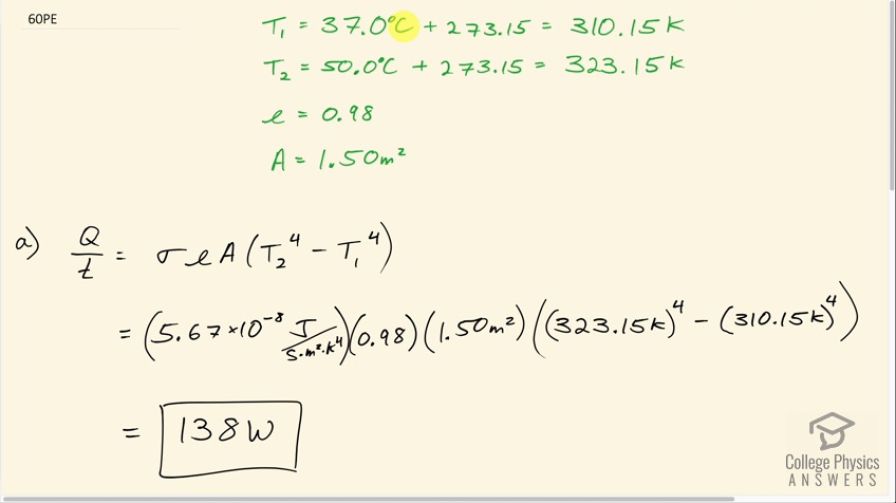 60PE
T₁ = 37.0°C + 273.15 = 310.15 K
T₂ = 50.0°C + 273.15 = 323.15 K
e = 0.98
A = 1.50 m²
a) Q/t = σeA(T₂⁴ − T₁⁴)
= (5.67 × 10⁻⁸ J/s·m²·K⁴)(0.98)(1.50 m²)((323.15 K)⁴ − (310.15 K)⁴)
= 138 W
College Physics
ANSWERS